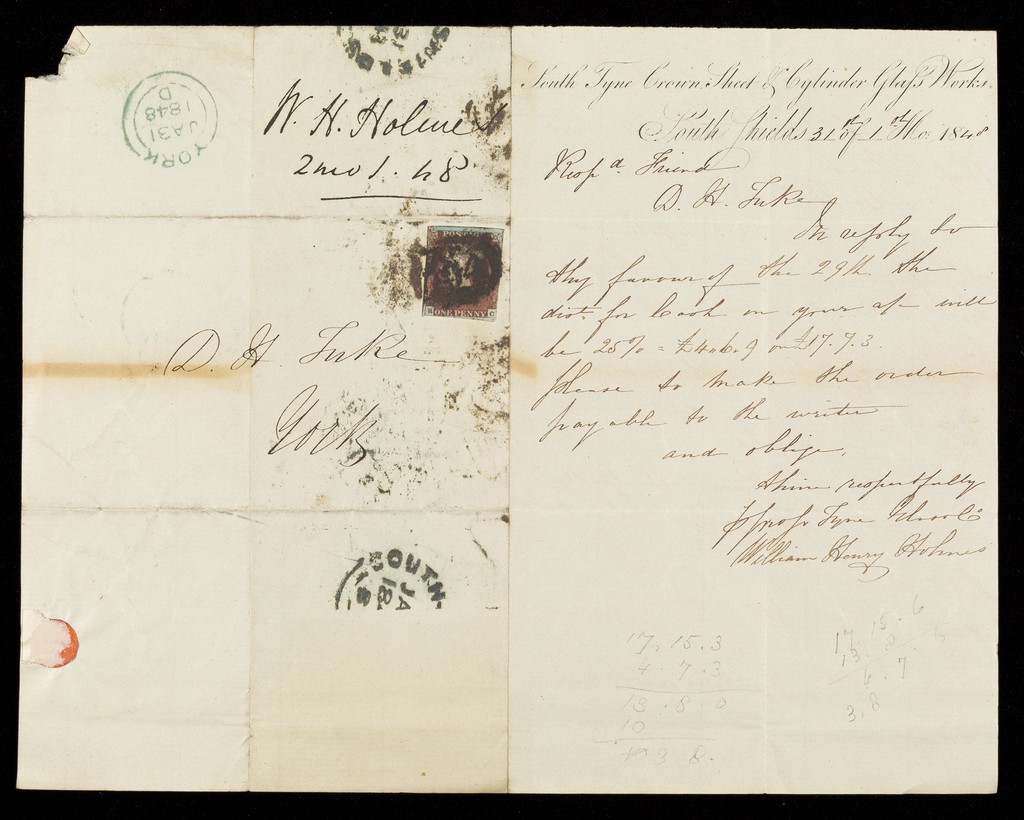 SHIELDS
YORK
JA31
1848
D
W. H. Holmes
2 mo 1. 48
POSTAGE
ONE PENNY
D. H. Tuke
York
SOUTH
JA
South Tyne Crown Sheet & Cylinder Glass Works.
South Shields 31st of 1st Mo. 1848
Respd Friend
D. H. Tuke
In reply to
thy favour of the 29th the
dist. for Cash on your a/c will
be 25% = £4.6.9 on £17.7.3.
Please to make the order
payable to the writer
and oblige,
thine respectfully
Tyne Co
William Henry Holmes
17.15.3
4.7.3
13.8.0
10
3 8.
17.15.6
13.8.6
4.7
3.8